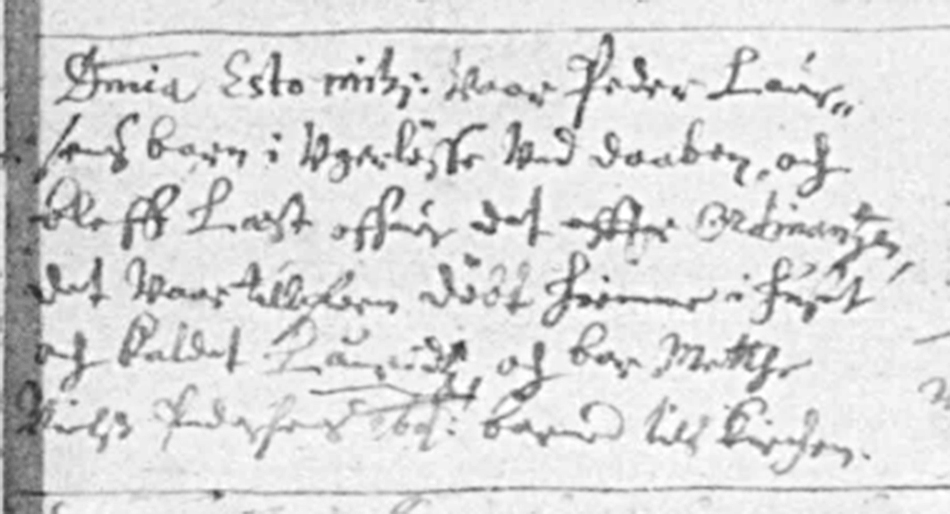 Dnica Esto mihi: Vaar Peder Laur„
sens barn i Ugerløsse Ved daaben, och
bleff Læst offuer det effter Ordinantzen,
det Vaar tilforn døbt hiemme i huset
och kaldet Lauridtz, och bar Mette
Nielss Pedersens barned till kirchen.